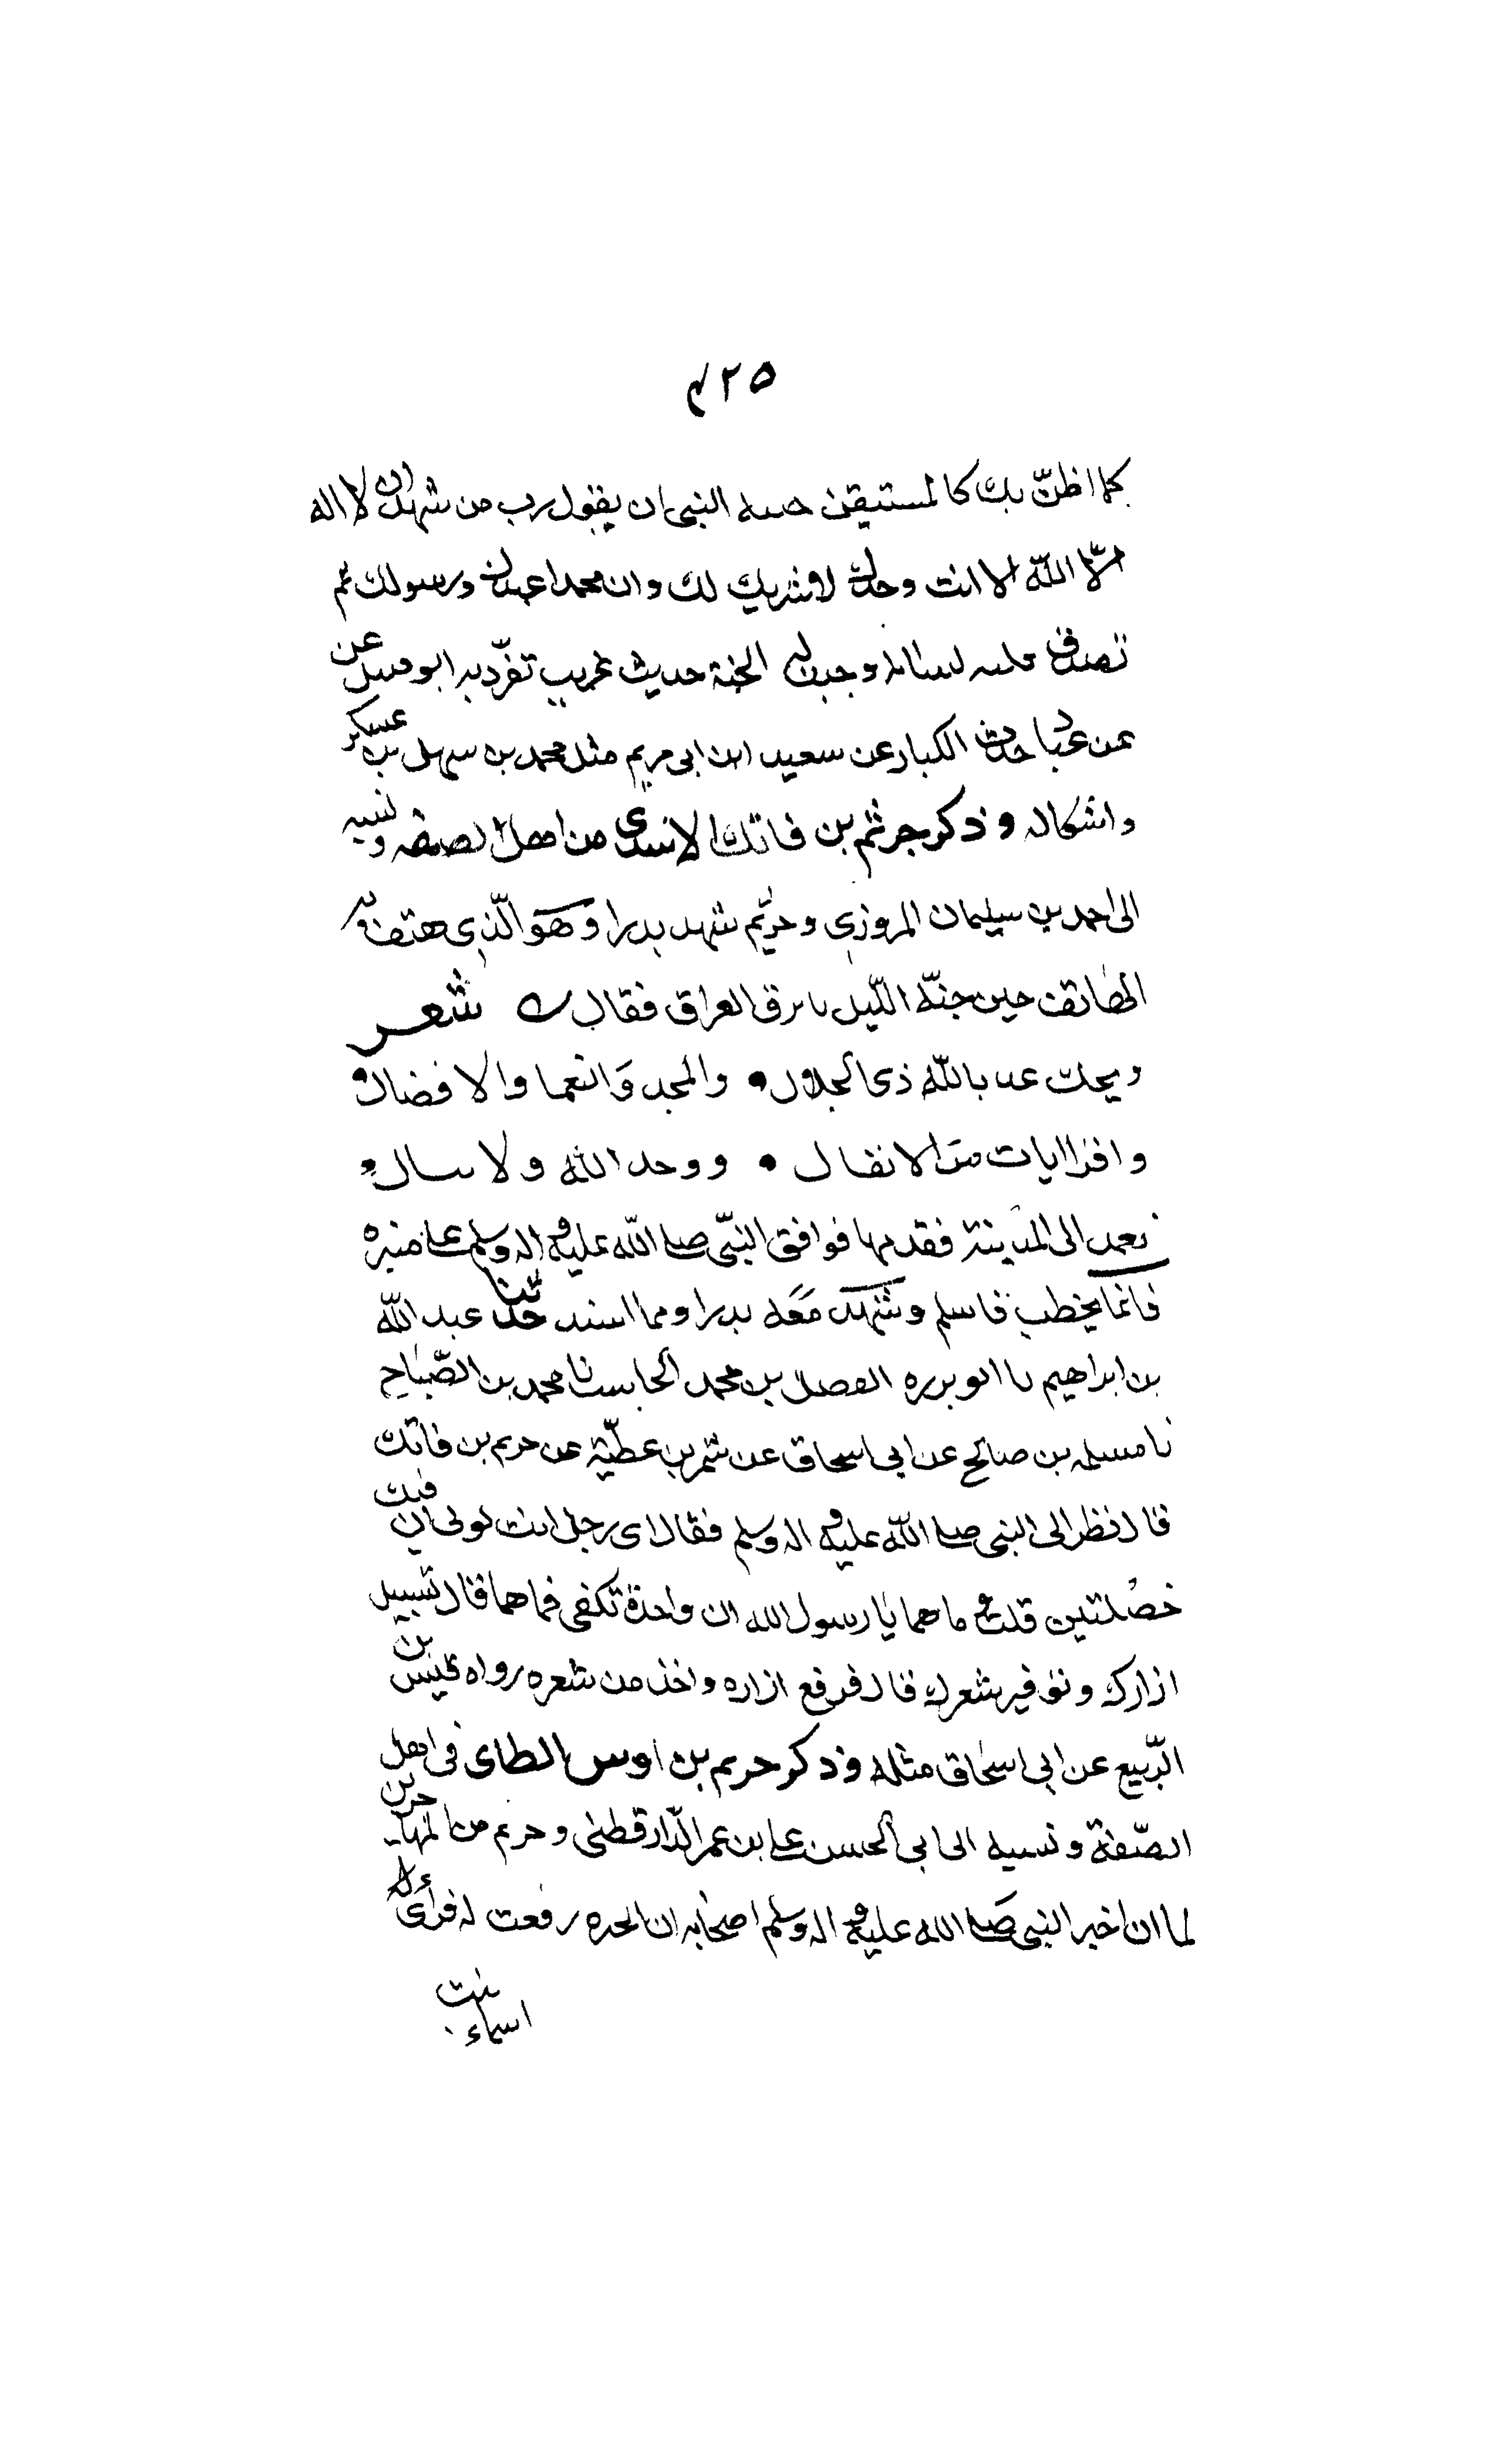 ٤٢٥
كما اظنّ بك كالمستيقن النبي ان يقول رب من شهد ان لا اله
الّا اللّه الا انت وحدك لا شريك لك وان محمدا عبدك ورسولك ثم
تصدق لسانه وجبت له الجنة حديث غريب تفرّد به ابو عن
عن الكبار عن سعيد ابن ابى مريم مثل محمد بن سهل بن عسكر
واشكاله وذكر جرثم بن فاتك الاسدى من اهل الصفه ونسبه
الى احمد بن سليمان المروزى وخريم شهد بدرا وهو الّذى هتف به
الهاتف حين جنّه اللّيل بابرق العراق فقال له شعر
ويحك عد باللّه ذى الجلال • والمجد والنعما والافضال
واقرا ايات من الانفال • ووحد اللّه ولا تبال
فعمد الى المدينة فقدمها فوافق النّبىّ صلى اللّه عليه واله وسلم على منبره
قائما يخطب فاسلم وشهد معه بدرا ومما اسند حدثنا عبد اللّه
بن ابراهيم نا ابو برره الفضل بن محمد الحاسب نا محمد بن الصّباح
نا مسلمه بن صالح عن ابى اسحاق عن شمر بن عطيّة عن حريم بن فاتك
قال نظر الى النبى صلى اللّه عليه واله وسلم فقال اى رجل انت لولا ان فيك
خصلتين قلت ما هما يا رسول الله ان واحدة تكفى فما هما قال تسبيل
ازارك وتوفير شعرك قال فرفع ازاره واخذ من شعره رواه قيس بن
الرّبيع عن ابى اسحاق مثله وذكر حريم بن اوس الطاى فى اهل
الصّفة ونسبه الى ابى الحسن على بن عمر الدّارقطنى وحريم من المهاجرين
لما ان اخبر النبى صلى اللّه عليه واله وسلم اصحابه ان الحيره رفعت له فراى
بنت
اسماء